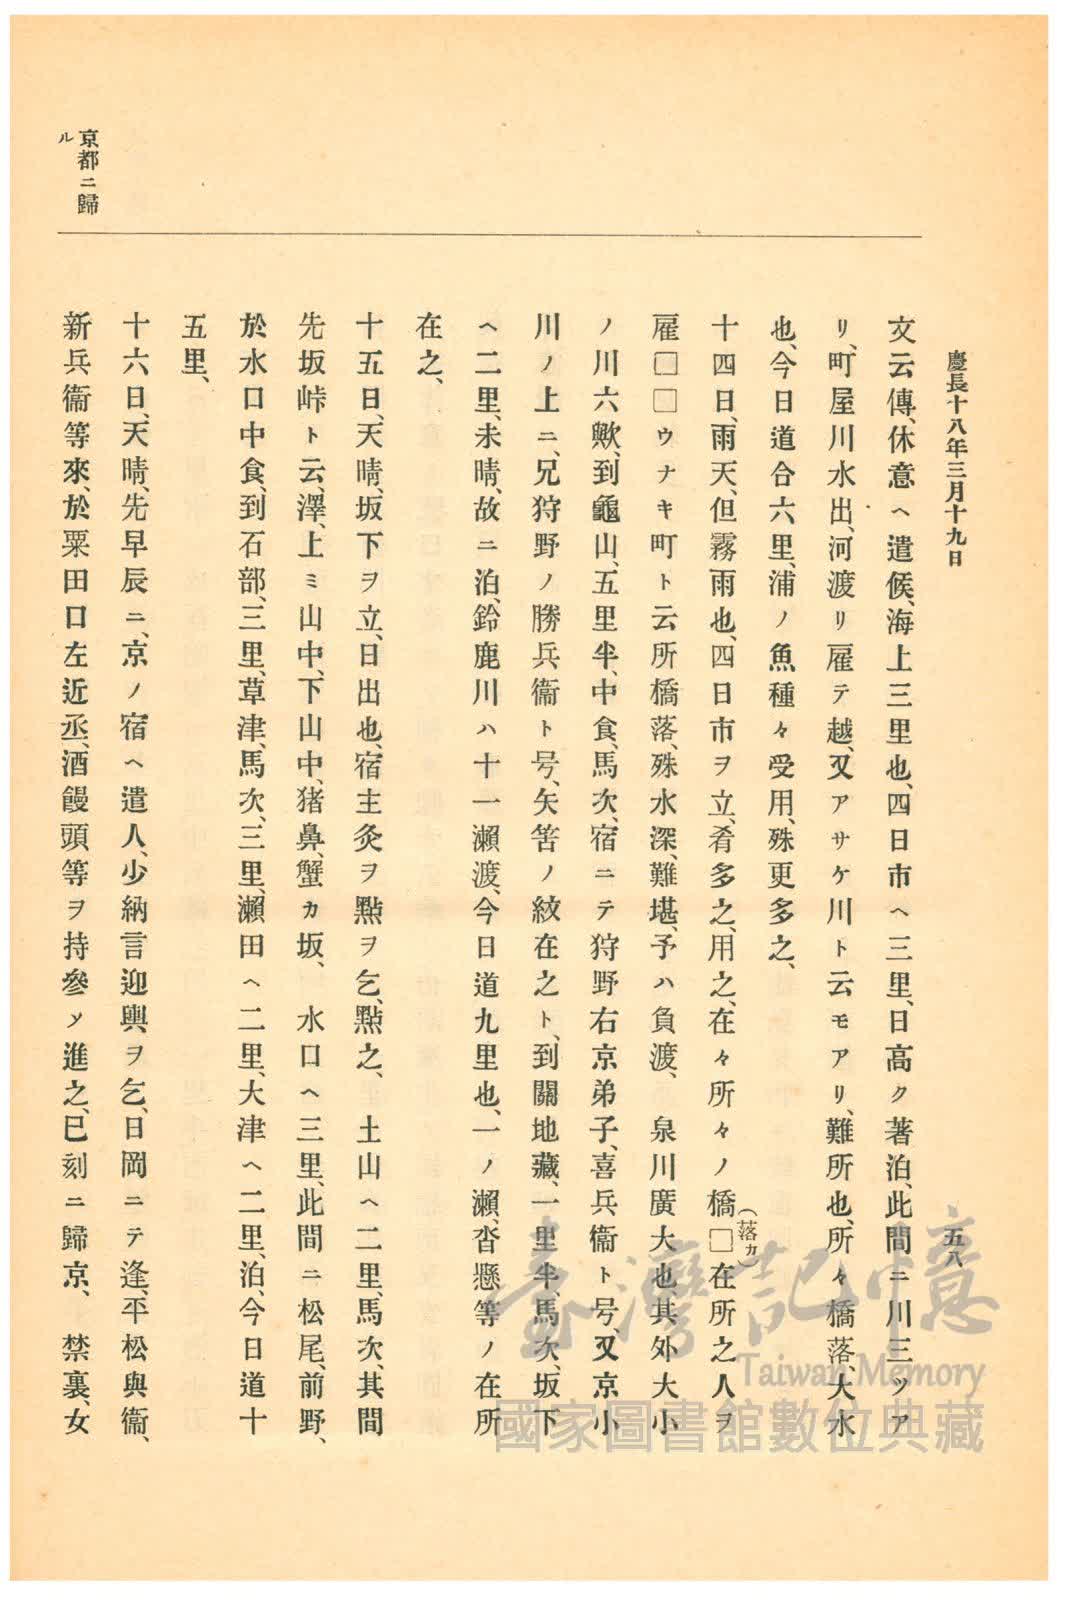 慶長十八年三月十九日
五八
文云傳、休意ヘ遣候、海上三里也、四日市ヘ三里、日高ク著泊、此間ニ川三ツア
リ、町屋川水出、河渡リ雇テ越、又アサケ川ト云モアリ、難所也、所々橋落、大水
也、今日道合六里、浦ノ魚種々受用、殊更多之、
十四日、雨天、但霧雨也、四日市ヲ立、肴多之、用之、在々所々ノ橋□(落カ)在所之人ヲ
雇□□ウナキ町ト云所橋落、殊水深、難堪、予ハ負渡、泉川廣大也其外大小
ノ川六歟、到龜山、五里半、中食、馬次、宿ニテ狩野右京弟子、喜兵衞ト号、又京小
川ノ上ニ、兄狩野ノ勝兵衞ト号、矢筈ノ紋在之ト、到關地藏、一里半、馬次、坂下
ヘ二里、未晴、故ニ泊、鈴鹿川ハ十一瀨渡、今日道九里也、一ノ瀨、沓懸等ノ在所
在之、
十五日、天晴、坂下ヲ立、日出也、宿主灸ヲ點ヲ乞、點之、土山ヘ二里、馬次、其間
先坂峠ト云、澤、上ミ山中、下山中、猪鼻、蟹カ坂、水口ヘ三里、此間ニ松尾、前野、
於水口中食、到石部、三里、草津、馬次、三里、瀨田ヘ二里、大津ヘ二里、泊、今日道十
五里、
京都ニ歸
ル
十六日、天晴、先早辰ニ、京ノ宿ヘ遣人、少納言迎輿ヲ乞、日岡ニテ逢、平松與衞、
新兵衞等來、於粟田口左近丞、酒饅頭等ヲ持參ソ進之、巳刻ニ歸京、禁裏、女
臺灣記憶
Taiwan Memory
國家圖書館數位典藏